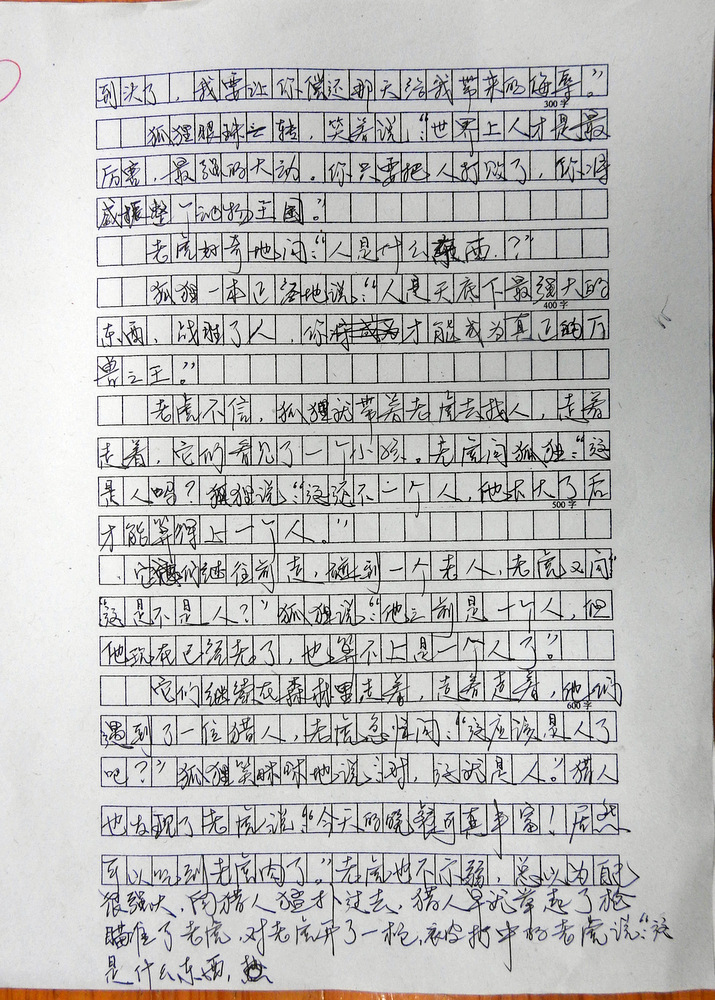 到头了，我要让你偿还那天给我带来的侮辱。”
300字
狐狸眼珠一转，笑着说：“世界上人才是最
厉害，最强的大动。你只要把人打败了，你将
威振整个动物王国。”
老虎好奇地问：“人是什么东西。？”
狐狸一本正经地说：“人是天底下最强大的
400字
东西，战胜了人，你才能成为真正的万
兽之王。”
老虎不信，狐狸就带着老虎去找人，走着
走着，它们看见了一个小孩。老虎问狐狸：“这
是人吗？狐狸说：“这还不一个人，他长大了后
500字
才能算得上一个人。”
它们继往前走，碰到一个老人，老虎又问“
“这是不是人？”狐狸说：“他之前是一个人，但
他现在已经老了，也算不上是一个人了。”
它们继续在森林里走着，走着走着，他们
600字
遇到了一位猎人，老虎急忙问：“这应该是人了
吧？”狐狸笑眯眯地说：对，这就是人。”猎人
也发现了老虎，说：“今天的晚餐可真丰富！居然
可以吃到老虎肉了。”老虎也不示弱，总以为自己
很强大，向猎人猛扑过去，猎人早就举起了枪
瞄准了老虎，对老虎开了一枪，被打中的老虎说：“这
是什么东西，